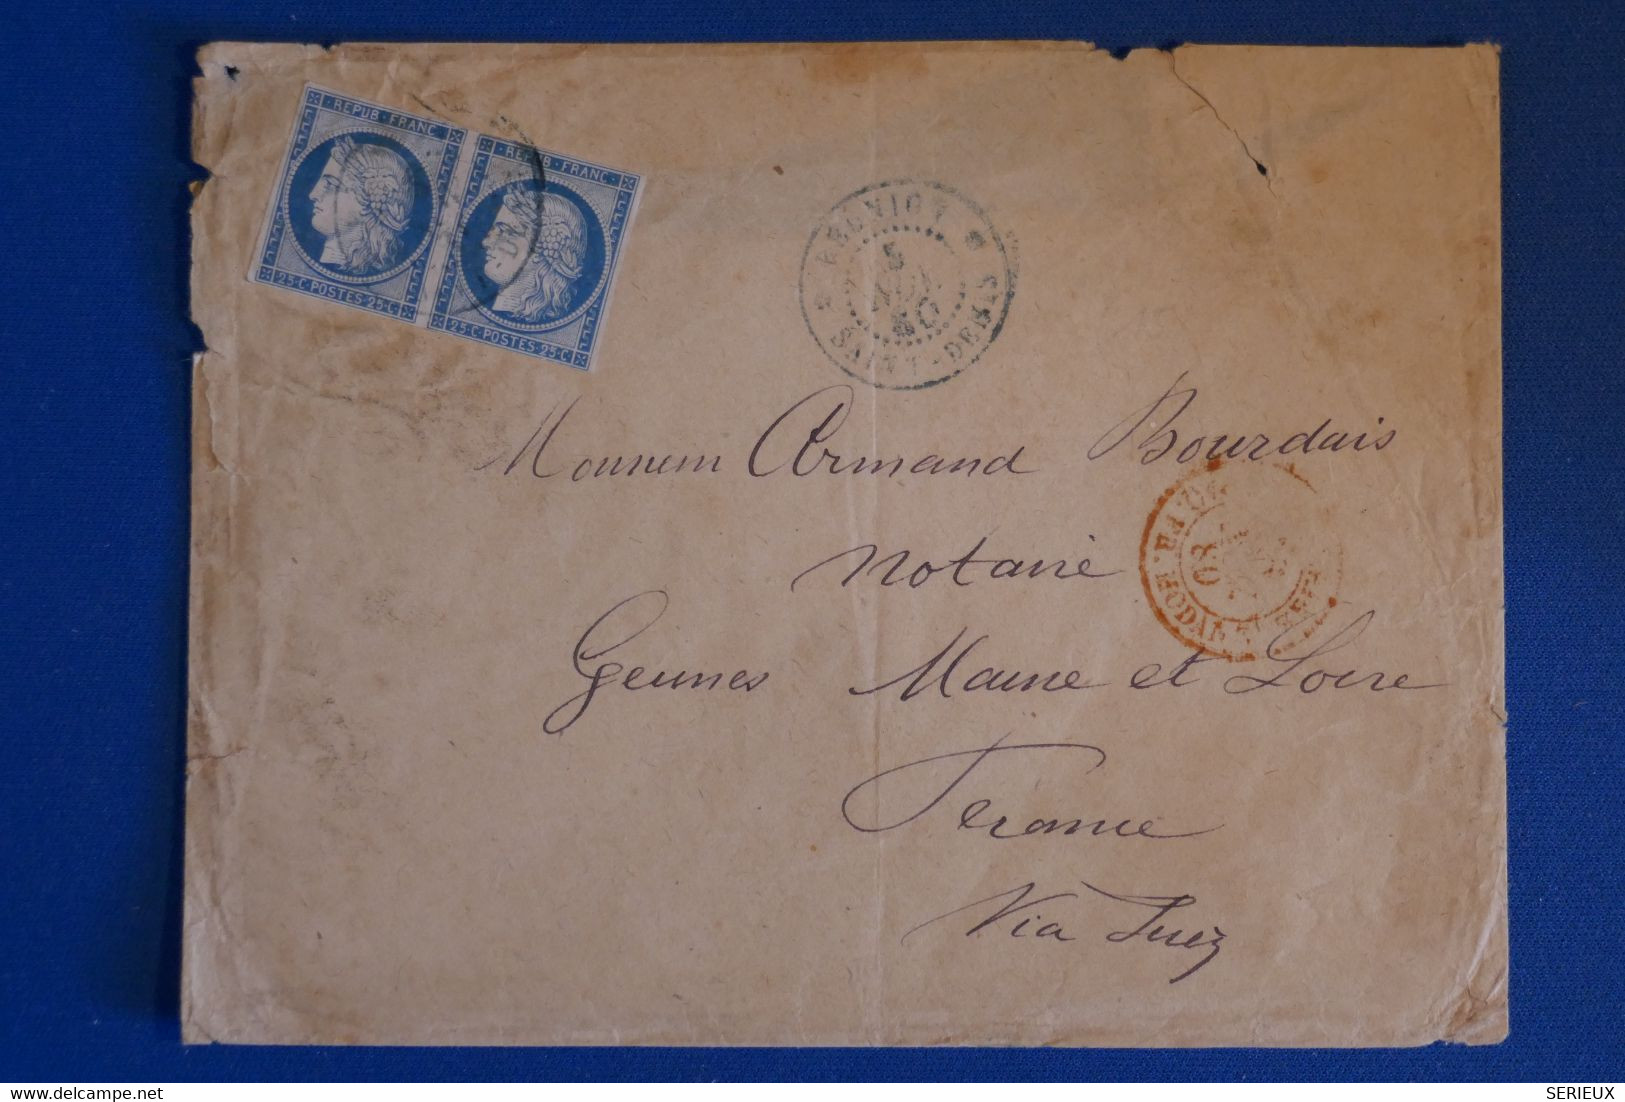 REPUB·FRANC
25·C·POSTES·25·C
REPUB·FRANC·
25·C·POSTES·25·C
REUNION
5
80
SAINT-DENIS
Monsieur Armand Bourdais
Notaire
MODANE
80
Gennes Maine et Loire
France
Via Suez
delcampe.net
SERIEUX